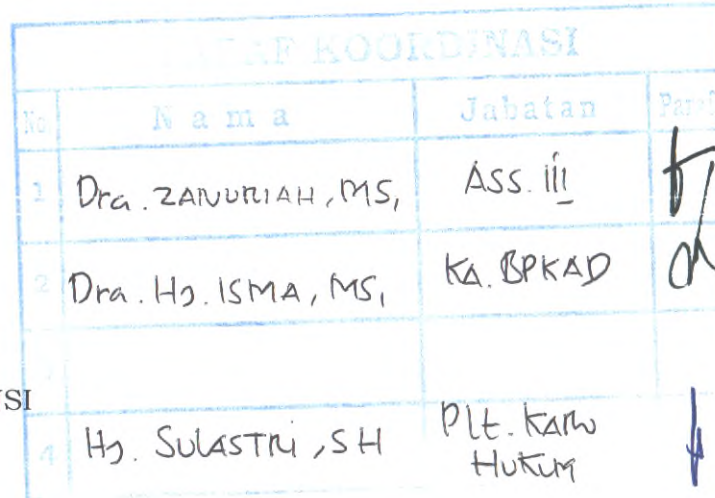 PARAF KOORDINASI
No Nama Jabatan Paraf
1 Dra. ZANURIAH, MS, ASS. III
2 Dra. Hj. ISMA, MS, KA. BPKAD
3
USI
4 Hj. SULASTRI, SH Plt. KARO
HUKUM